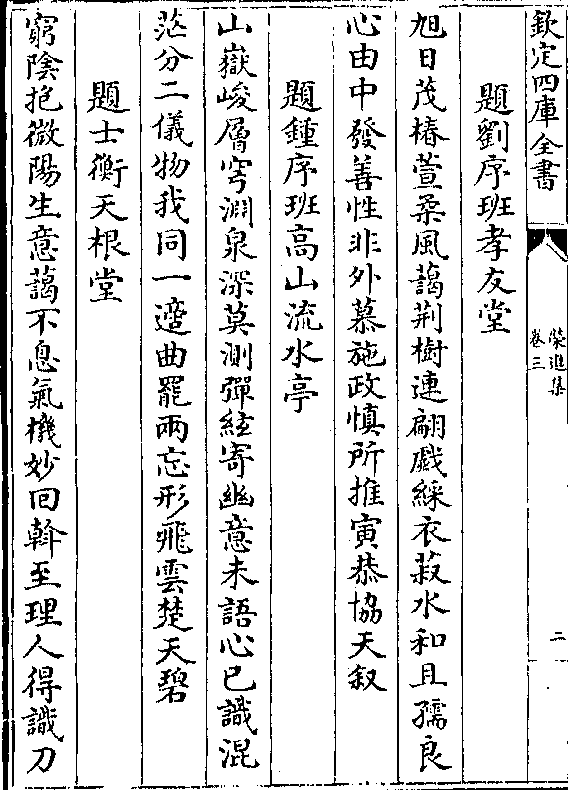 欽定四庫全書
榮進集
卷三
二
題劉序班孝友堂
旭日茂椿萱柔風藹荆樹連翩戲綵衣菽水和且孺良
心由中發善性非外慕施政慎所推寅恭協天叙
題鍾序班高山流水亭
山嶽峻層穹淵泉深莫測彈絃寄幽意未語心已識混
茫分二儀物我同一
曲罷兩忘形飛雲楚天碧
題士衡天根堂
窮陰抱微陽生意藹不息氣機妙回斡至理人得識刀